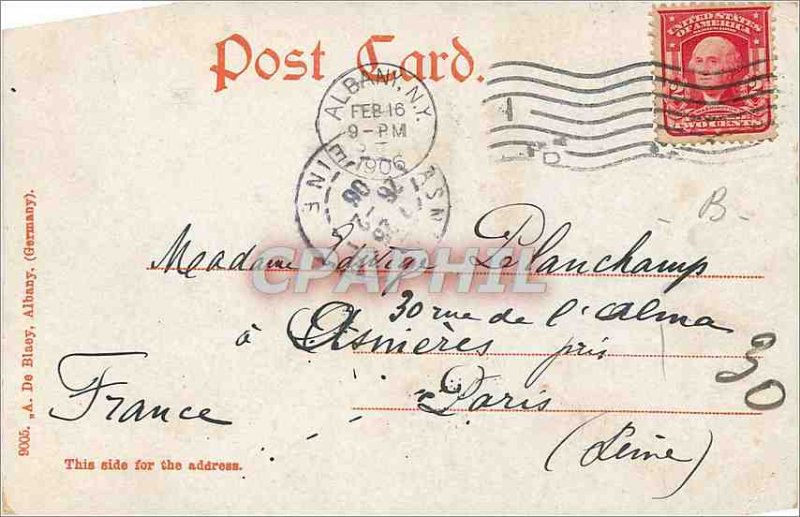 Post Card.
UNITED STATES
OF AMERICA
2 2
TWO CENTS
ALBANY, N.Y.
FEB 16
9-PM
1906
ASN
INE
26
-2
06
- B -
Madame Edwige Delanchamp
CPAPHIL
30 rue de l'alma
à Asnières près
Paris
30
France
(Seine)
9005. „A. De Blaey, Albany. (Germany).
This side for the address.